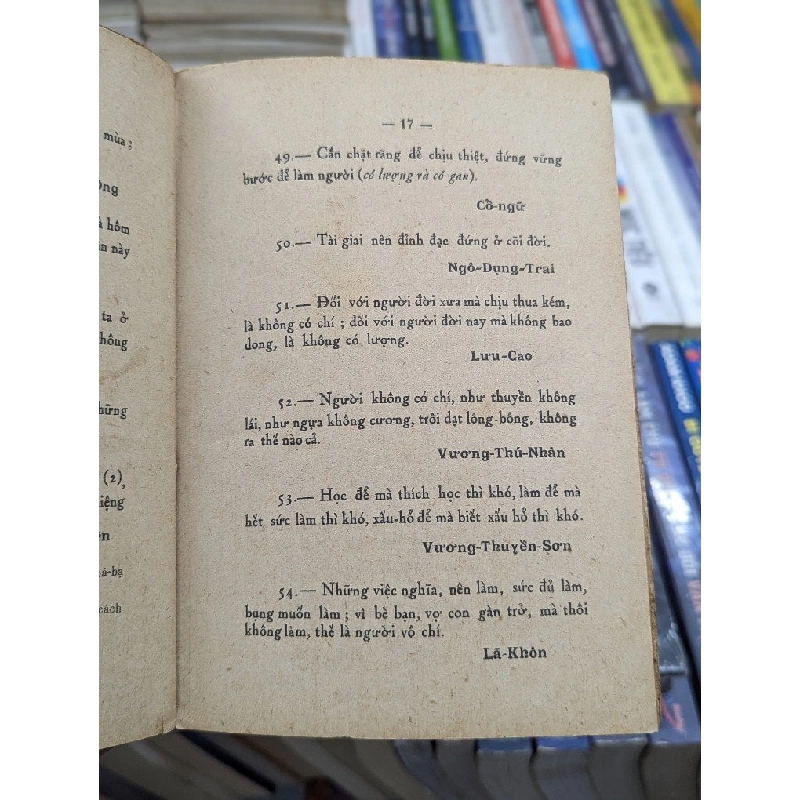 mùa ;
hôm
này
ta ở
hững
(2),
cách
— 17 —
49.— Cắn chặt răng để chịu thiệt, đứng vững
bước để làm người (có lượng và có gan).
Cổ-ngữ
50.— Tài giai nên đỉnh đạc đứng ở cõi đời.
Ngô-Dụng-Trai
51.— Đối với người đời xưa mà chịu thua kém,
là không có chí ; đối với người đời nay mà không bao
dong, là không có lượng.
Lưu-Cao
52.— Người không có chí, như thuyền không
lái, như ngựa không cương, trôi dạt lông-bông, không
ra thế nào cả.
Vương-Thú-Nhân
53.— Học để mà thích học thì khó, làm để mà
hết sức làm thì khó, xấu-hổ để mà biết xấu hổ thì khó.
Vương-Thuyền-Sơn
54.— Những việc nghĩa, nên làm, sức đủ làm,
bụng muốn làm ; vì bè bạn, vợ con gàn trở, mà thôi
không làm, thế là người vô chí.
Lã-Khôn